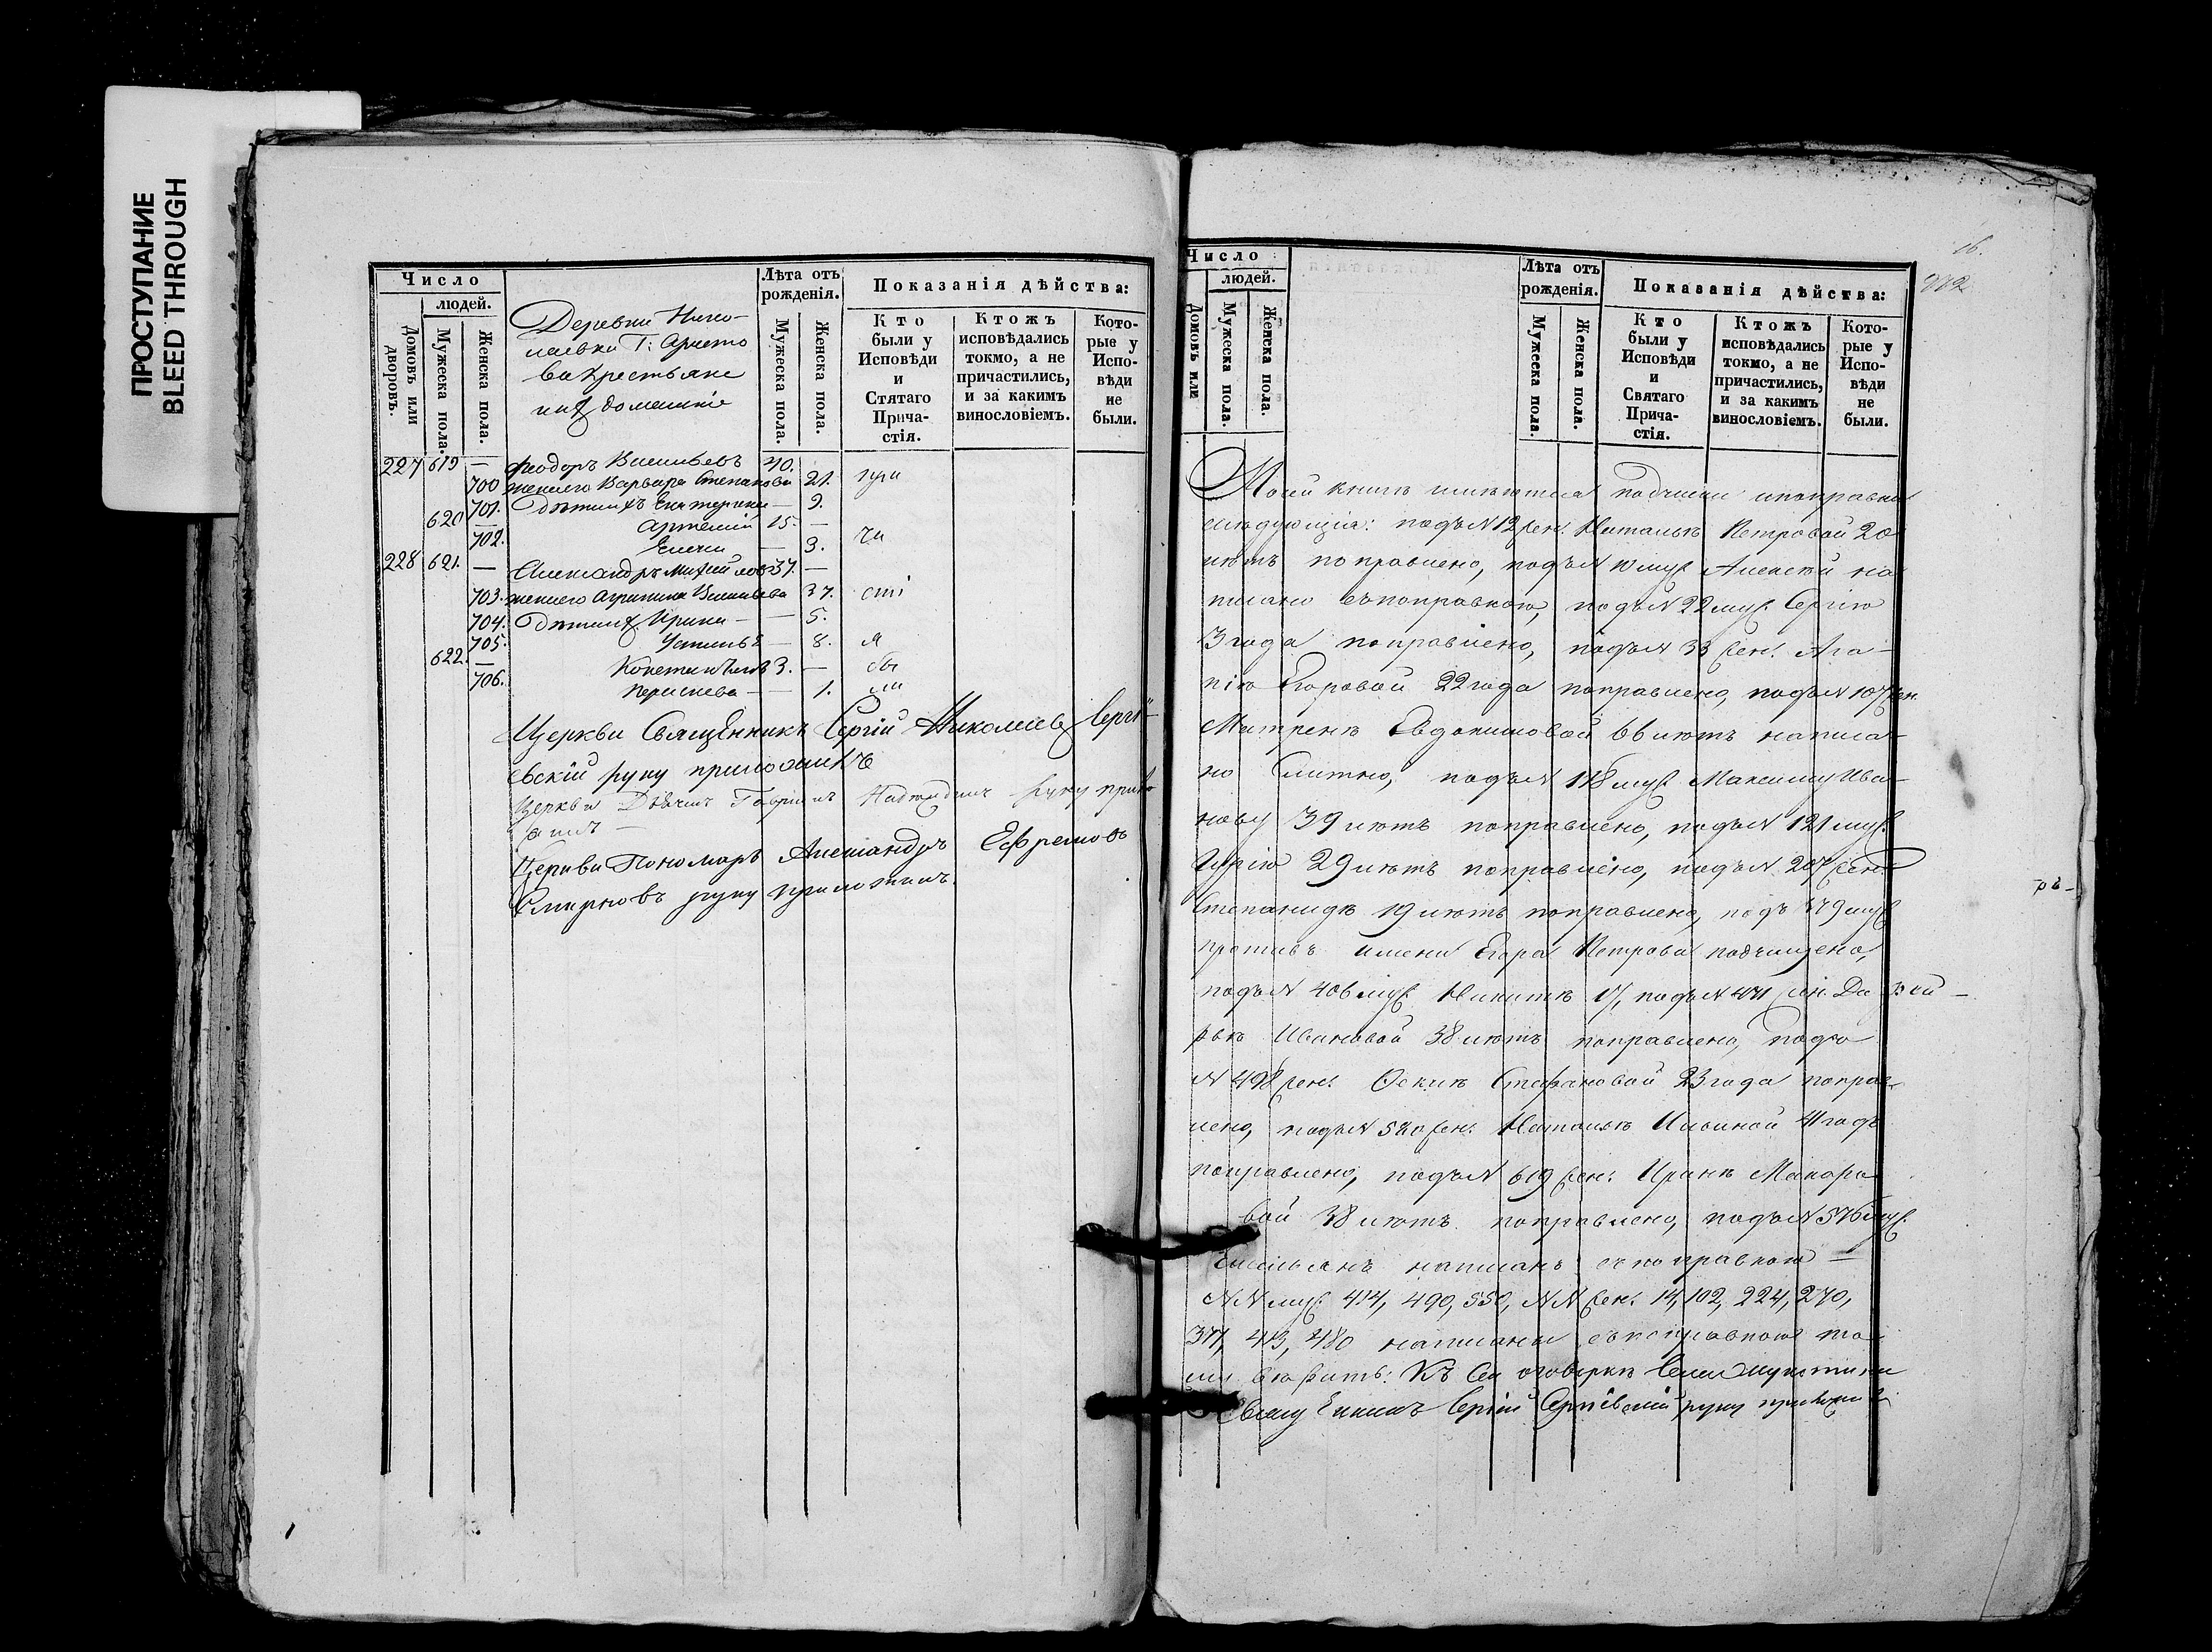 ПРОСТУПАНИЕ
BLEED THROUGH
Число
людей.
Домовъ или дворовъ.
Мужеска пола.
Женска пола.
Деревни Нико-
лаевки Г: Аристо
ва крестьяне
ихъ домашніе
Лѣта отъ рожденія.
Мужеска пола.
Женска пола.
Показанія дѣйства:
Кто были у Исповѣди и Стятаго Прича-стія.
Ктожъ исповѣдались токмо, а не причастились, и за какимъ винословіемъ.
Кото-рые у Испо-вѣди не были.
227 619 — Феодоръ Васильевъ 40.
700 жена его Варвара Степанова 21. при
701. Дѣти ихъ Екатерина — 9.
620 — Артемій 15. —
702. Елена — 3. ча
228 621. — Александръ Михайловъ 37. —
703. жена его Агрипина Васильева 37. сті
704. Дѣти ихъ Ирина — — 5.
705. — 8. я
622. — Констинтинъ 3. — бы
706. — 1. ли
Церкви Священникъ Сергій Николаевъ Сергі-
евскій руку приложилъ
Церкви Дьячокъ Гавріилъ руку прило
жилъ —
Церкви Пономарь Александръ Ефремовъ
Смирновъ руку приложилъ.
16.
Число
людей.
Домовъ или
Мужеска пола.
Женска пола.
Лѣта отъ рожденія.
Мужеска пола.
Женска пола.
Показанія дѣйства:
Кто были у Исповѣди и Святаго Прича-стія.
Ктожъ исповѣдались токмо, а не причастились, и за какимъ винословіемъ.
Кото-рые у Испо-вѣди не были.
книгѣ имѣются подчистки и поправки
слѣдующія: подъ N 12 жен. Натальѣ Петровой 20
лѣтъ поправлено, подъ N 10 муж. Алексѣй на
писано съ поправкою, подъ N 22 муж. Сергію
3 года поправлено, подъ N 33 жен. Ага-
пію Егоровой 22 года поправлено, подъ N 107 жен.
Матренѣ Евдокимовой 66 лѣтъ написа-
но слитно, подъ N 118 муж. Максиму Ива-
нову 39 лѣтъ поправлено, подъ N 121 муж.
29 лѣтъ поправлено, подъ N 207 жен.
Степанидѣ 19 лѣтъ поправлено, подъ 379 муж.
противъ имени Егора Петрова подчищено,
подъ N 406 муж. Никитѣ 17, подъ N 471 жен. Да
рьѣ Ивановой 38 лѣтъ поправлено, подъ
N 498 жен. Стефановой 23 года поправ-
лено, подъ N 520 жен. Натальѣ Ильиной 41 годъ
поправлено, подъ N 619 жен. Иринѣ Макаро
вой 38 лѣтъ поправлено, подъ N 576 муж.
Емельянъ написанъ съ поправкою —
NN муж. 414, 490, 550, NN жен. 14, 102, 224, 270,
377, 413, 480 написаны съ поправкою
вѣрить: Къ сей оговоркѣ
Священникъ Сергій Сергіевскій руку приложилъ